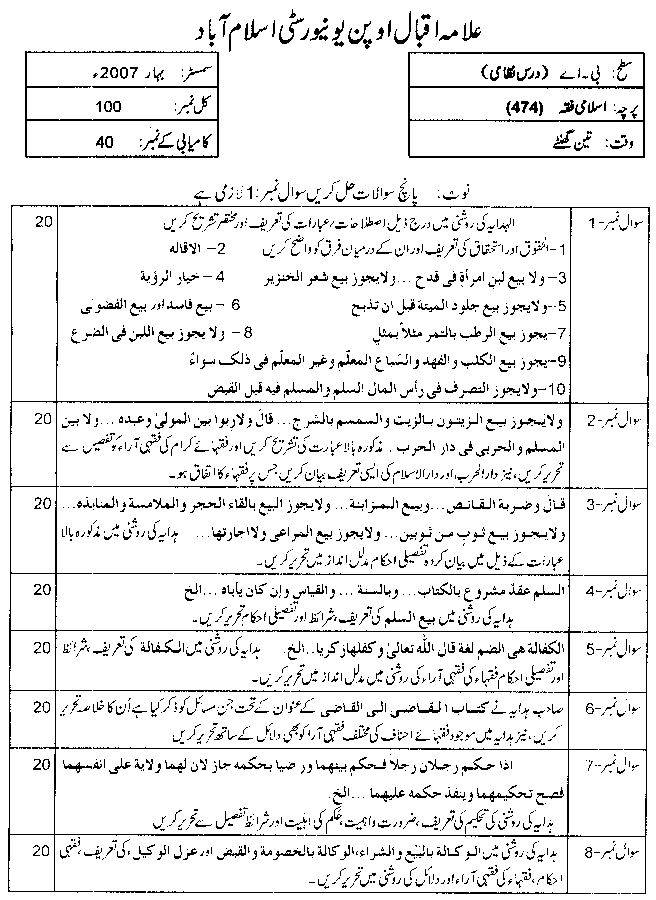 علامہ اقبال اوپن یونیورسٹی اسلام آباد
سطح: بی۔اے (درس نظامی)
پرچہ: اسلامی فقہ (474)
وقت: تین گھنٹے
سمسٹر: بہار 2007ء
کل نمبر: 100
کامیابی کے نمبر: 40
نوٹ: پانچ سوالات حل کریں سوال نمبر: 1 لازمی ہے
سوال نمبر-1 الہدایہ کی روشنی میں درج ذیل اصطلاحات/عبارات کی تعریف اور مختصر تشریح کریں 20
1-الحقوق اور استحقاق کی تعریف اور ان کے درمیان فرق کو واضح کریں 2- الاقالہ
3-ولا بیع لبن امرأة فی قدح ...ولایجوز بیع شعر الخنزیر 4- خیار الرؤیة
5-ولایجوز بیع جلود المیتة قبل ان تدبح 6- بیع فاسد اور بیع الفضولی
7-یجوز بیع الرطب بالتمر مثلاً بمثلٍ 8- ولا یجوز بیع اللبن فی الضرع
9-یجوز بیع الکلب و الفهد و السّباع المعلّم وغیر المعلّم فی ذلک سواءٌ
10-ولایجوز التصرف فی رأس المال السلم والمسلم فیه قبل القبض
سوال نمبر-2 ولایجوز بیع الزیتون بالزیت والسمسم بالشرج ... قال ولاربوا بین المولیٰ وعبده ... ولا بین 20
المسلم والحربی فی دار الحرب . مذکورہ بالا عبارت کی تشریح کریں اور فقہائے کرام کی فقہی آراء کو تفصیل سے
تحریر کریں، نیز دار الحرب اور دار الاسلام کی ایسی تعریف بیان کریں جس پر فقہاء کا اتفاق ہو۔
سوال نمبر-3 قال وضربة القانص...وبیع المزابنة... ولایجوز البیع بالقاء الحجر والملامسة والمنابذه... 20
ولایجوز بیع ثوب من ثوبین... ولایجوز بیع المراعی ولااجارتها... ہدایہ کی روشنی میں مذکورہ بالا
عبارات کے ذیل میں بیان کردہ تفصیلی احکام مدلل انداز میں تحریر کریں۔
سوال نمبر-4 السلم عقدٌ مشروع بالکتاب ... وبالسنة ... والقیاس وإن کان یأباه ... الخ 20
ہدایہ کی روشنی میں بیع السلم کی تعریف، شرائط اور تفصیلی احکام تحریر کریں۔
سوال نمبر-5 الکفالة هی الضم لغة قال اللّٰه تعالیٰ و کفلها زکریا...الخ. ہدایہ کی روشنی میں الکفالة کی تعریف، شرائط 20
اور تفصیلی احکام فقہاء کی فقہی آراء کی روشنی میں مدلل انداز میں تحریر کریں۔
سوال نمبر-6 صاحب ہدایہ نے کتاب القاضی الی القاضی کے عنوان کے تحت جن مسائل کو ذکر کیا ہے اُن کا خلاصہ تحریر 20
کریں، نیز ہدایہ میں موجود فقہائے احناف کی مختلف فقہی آراء کو بھی دلائل کے ساتھ تحریر کریں
سوال نمبر-7 اذا حکم رجلان رجلاً فحکم بینهما ورضیا بحکمه جاز لان لهما ولایة علی انفسهما 20
فصح تحکیمهما وینفذ حکمه علیهما ...الخ.
ہدایہ کی روشنی کی تحکیم کی تعریف، ضرورت و اہمیت، حَکَم کی اہلیت اور شرائط تفصیل سے تحریر کریں۔
سوال نمبر-8 ہدایہ کی روشنی میں الوکالة بالبیع والشراء، الوکالة بالخصومة والقبض اور عزل الوکیل، کی تعریف، فقہی 20
احکام، فقہاء کی فقہی آراء اور دلائل کی روشنی میں تحریر کریں۔